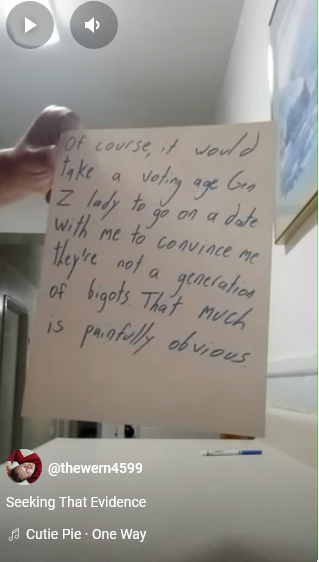 Of course, it would
take a voting age Gen
Z lady to go on a date
with me to convince me
they're not a generation
of bigots. That much
is painfully obvious.
@thewern4599
Seeking That Evidence
Cutie Pie · One Way